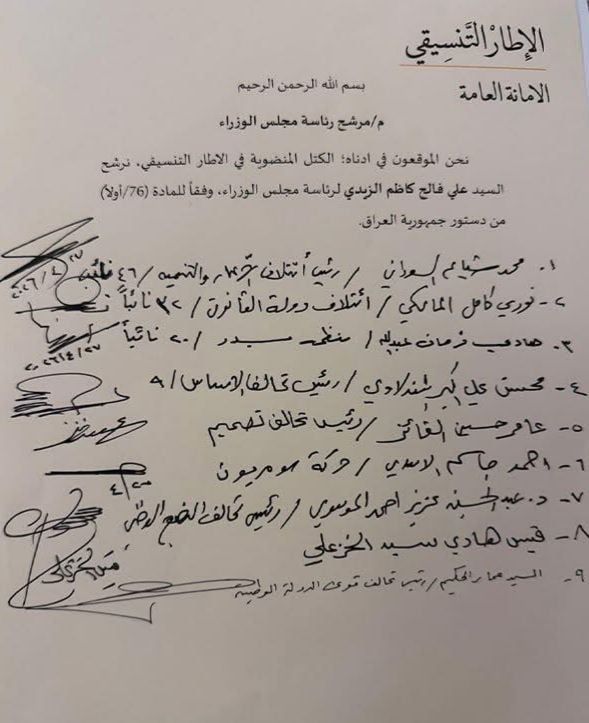 الإطارْ التَّنسِيقي
الامانة العامة
بسم الله الرحمن الرحيم
م/مرشح رئاسة مجلس الوزراء
نحن الموقعون في ادناه؛ الكتل المنضوية في الاطار التنسيقي، نرشح
السيد علي فالح كاظم الزيدي لرئاسة مجلس الوزراء، وفقاً للمادة (76/أولاً)
من دستور جمهورية العراق.
١. محمد شياع السوداني / رئيس أئتلاف الإعمار والتنمية / ٤٦ نائب
٢- نوري كامل المالكي / أئتلاف دولة القانون / ٣٢ نائباً
٣. هادي فرحان عبدالله / منظمة بدر / ٢٠ نائباً
٢٠٢٦/٤/٢٧
٤- محسن علي اكبر المندلاوي / رئيس تحالف الاساس / ٩
٥- عامر حسين الفائز / رئيس تحالف تصميم
٦- احمد جاسم الاسدي / حركة سومريون
٧- د. عبدالحسين عزيز احمد الموسوي / رئيس تحالف النهج الوطني
٨- قيس هادي سيد الخزعلي
٩- السيد عمار الحكيم / رئيس تحالف قوى الدولة الوطنية